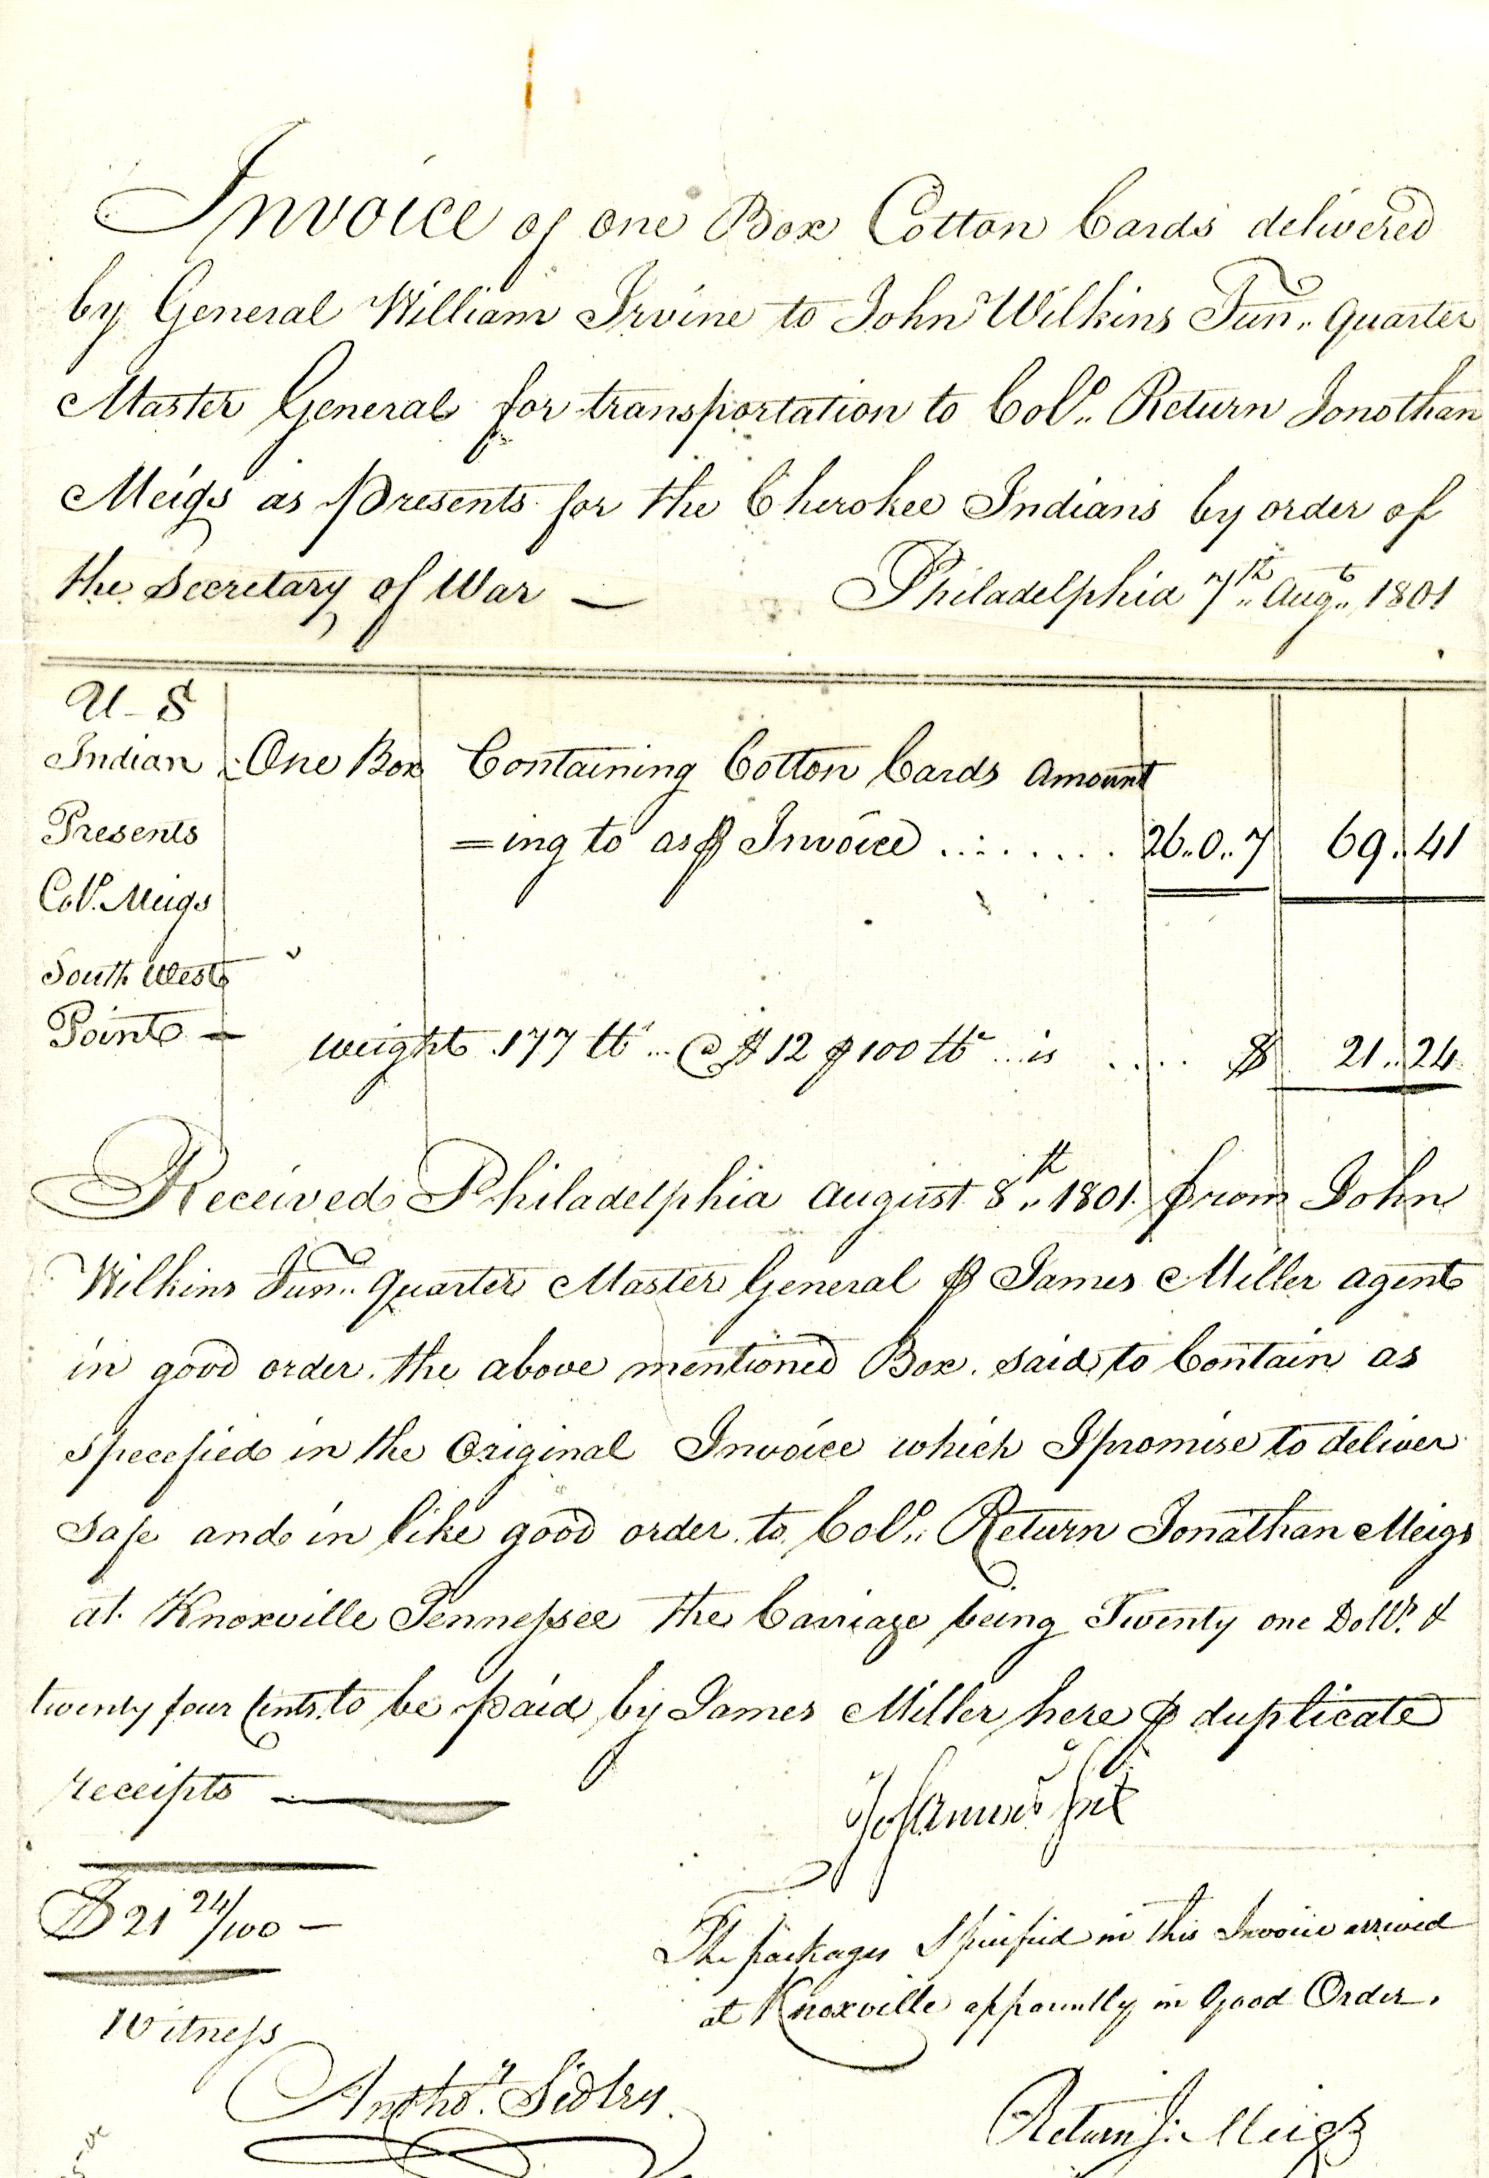 Invoice of one Box Cotton Cards delivered
by General William Irvine to John Wilkins Jun.. Quarter
Master General for transportation to Col.. Return Jonothan
Meigs as Presents for the Cherokee Indians by order of
the Secretary of War — Philadelphia 7th.. Augt.. 1801
U-S
Indian One Box Containing Cotton Cards Amount
Presents =ing to as ⅌ Invoice ........ 26..0..7 69..41
Col. Meigs
South West
Point — weight 177 lb ... @ $12 ⅌ 100 lb ... is .... $ 21..24
Received Philadelphia August 8th.. 1801 from John
Wilkins Jun.. Quarter Master General ⅌ James Miller agent
in good order the above mentioned Box. said to Contain as
specefied in the Original Invoice which I promise to deliver
safe and in like good order to Col.. Return Jonathan Meigs
at Knoxville Tennessee the Carriage being Twenty one Dolls. &
twenty four Cents to be paid by James Miller here ⅌ duplicate
receipts —
$21 24/100 —
The packages Specified in this Invoice arrived
at Knoxville apparently in Good Order.
Witness
Anthoy.
Return J. Meigs